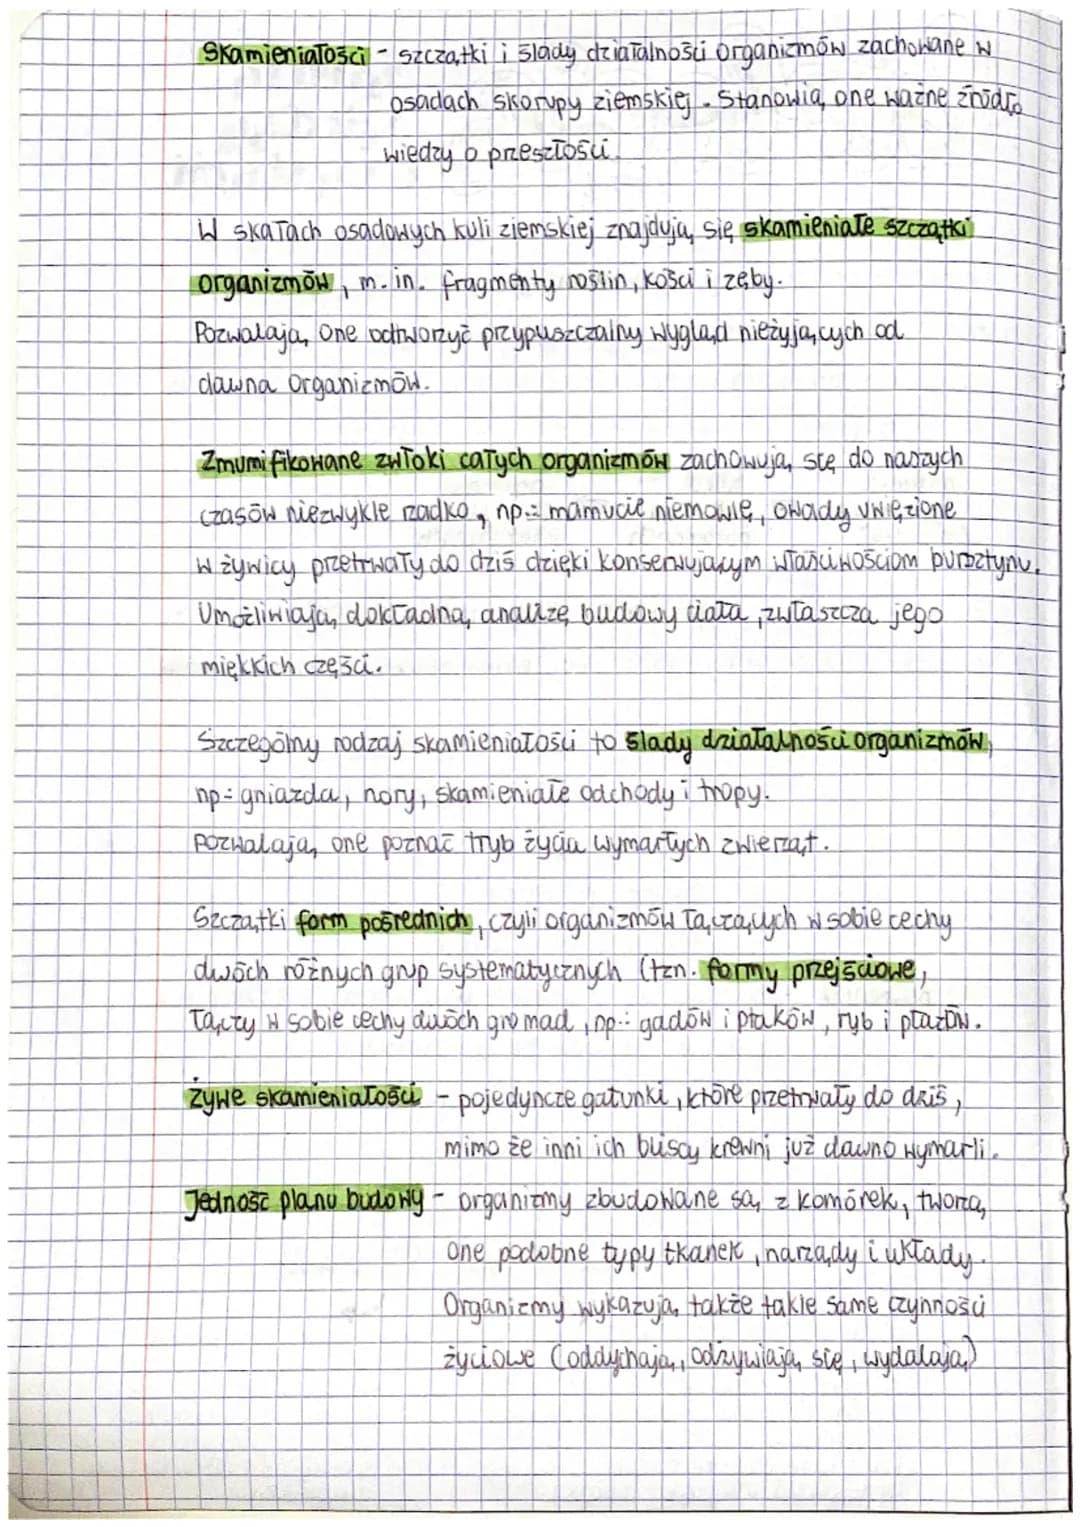 Skamieniałości - szczątki i ślady działalności organizmów zachowane w
osadach skorupy ziemskiej. Stanowią one ważne źródło
wiedzy o przeszłości.
W skałach osadowych kuli ziemskiej znajdują się skamieniałe szczątki
organizmów, m.in. fragmenty roślin, kości i zęby.
Pozwalają one odtworzyć przypuszczalny wygląd nieżyjących od
dawna organizmów.
Zmumifikowane zwłoki całych organizmów zachowują się do naszych
czasów niezwykle rzadko, np.: mamucie niemowlę, owady uwięzione
w żywicy przetrwały do dziś dzięki konserwującym właściwościom bursztynu.
Umożliwiają dokładną analizę budowy ciała, zwłaszcza jego
miękkich części.
Szczególny rodzaj skamieniałości to ślady działalności organizmów,
np: gniazda, nory, skamieniałe odchody i tropy.
Pozwalają one poznać tryb życia wymarłych zwierząt.
Szczątki form pośrednich, czyli organizmów łączących w sobie cechy
dwóch różnych grup systematycznych (tzn. formy przejściowe,
łączy w sobie cechy dwóch gromad, np.: gadów i ptaków, ryb i płazów.
Żywe skamieniałości - pojedyncze gatunki, które przetrwały do dziś,
mimo że inni ich bliscy krewni już dawno wymarli.
Jedność planu budowy - organizmy zbudowane są z komórek, tworzą
one podobne typy tkanek, narządy i układy.
Organizmy wykazują także takie same czynności
życiowe (oddychają, odżywiają się, wydalają)